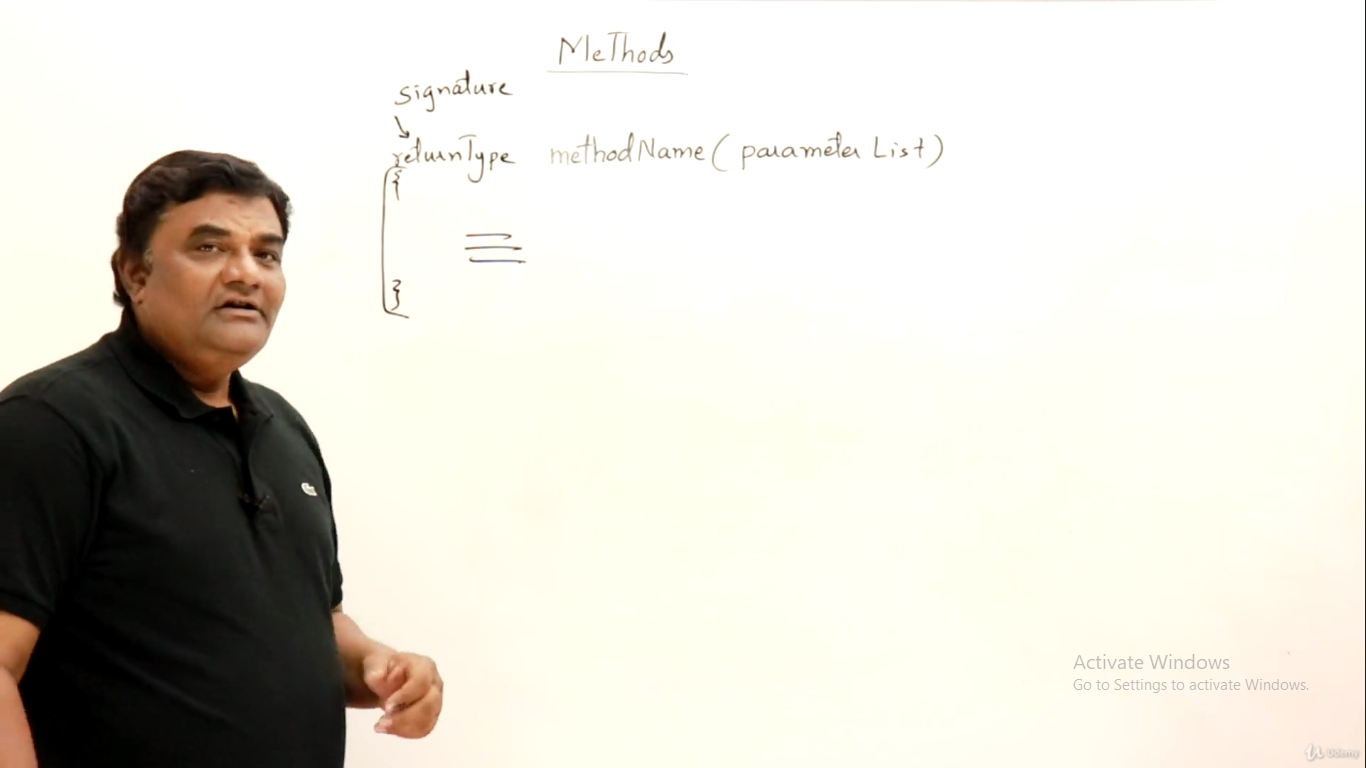 MeThods
signature
returnType methodName ( parameter List )
{
}
Activate Windows
Go to Settings to activate Windows.
Udemy